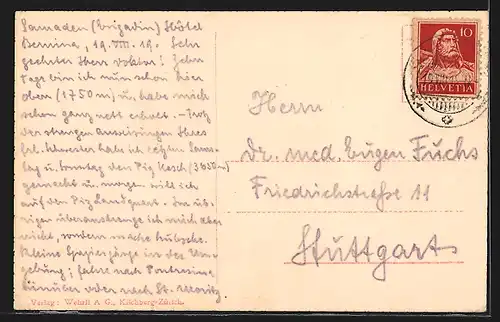 Samaden (Engadin) Hôtel
Bernina, 19. VIII. 19. Sehr
geehrter Herr Doktor! Zehn
Tage bin ich nun schon hier
oben (1750 m) u. habe mich
schon ganz nett erholt. – Trotz
der strengen Anweisungen Ihres
Frl. Schwester habe ich letzten Sams-
tag u. Sonntag den Piz Kesch (3 m)
gemacht u. morgen will ich
auf den Piz Languard. Im üb-
rigen überanstrenge ich mich aber
nicht, sondern mache hübsche
kleine Spaziergänge in die Um-
gebung; fahre nach Pontresina
hinüber oder nach St. Moritz
Verlag: Wehrli A. G., Kilchberg-Zürich.
10
HELVETIA
Herrn
Dr. med. Eugen Fuchs
Friedrichstraße 11
Stuttgart